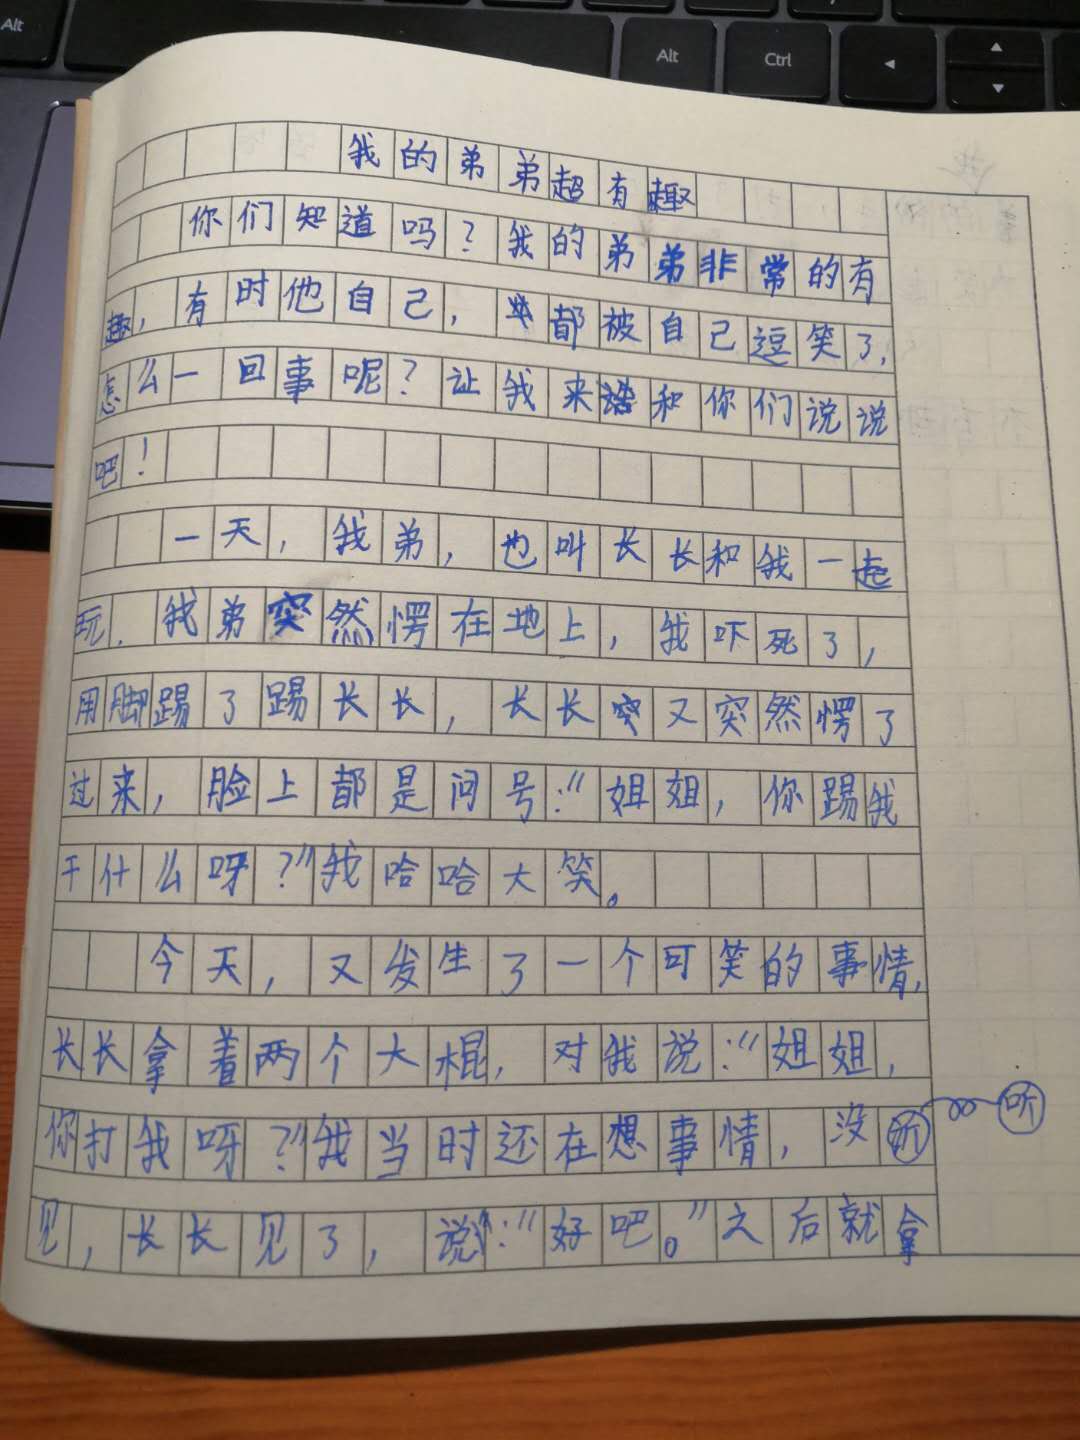 Alt
Alt
Ctrl
我的弟弟超有趣
你们知道吗？我的弟弟非常的有
趣，有时他自己，都被自己逗笑了，
怎么一回事呢？让我来和你们说说
吧！
一天，我弟，也叫长长和我一起
玩．我弟突然愣在地上，我吓死了，
用脚踢了踢长长，长长突又突然愣了
过来，脸上都是问号：“姐姐，你踢我
干什么呀？”我哈哈大笑。
今天，又发生了一个可笑的事情，
长长拿着两个大棍，对我说：“姐姐，
你打我呀？”我当时还在想事情，没听
听
见，长长见了，说：“好吧。”之后就拿